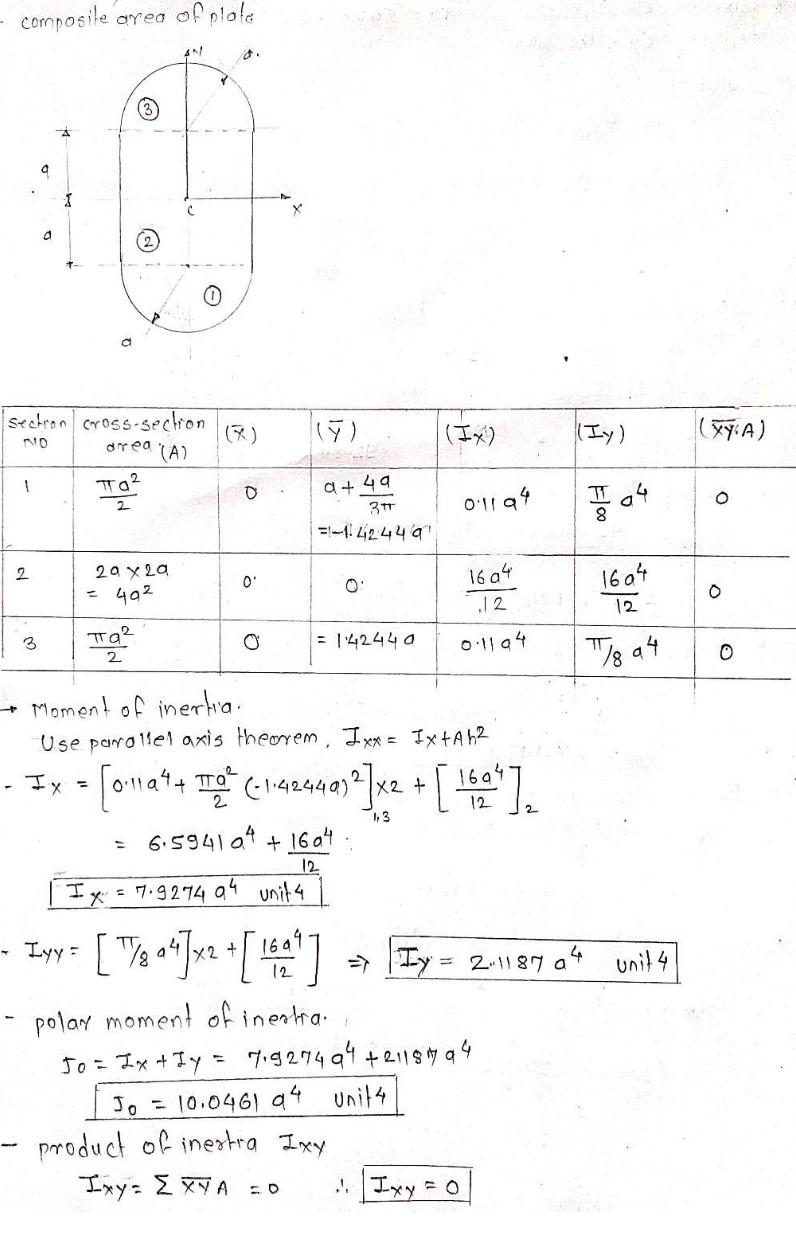 - composite area of plate
y
a.
③
a
C
x
a
②
①
a
Section NO | cross-section area (A) | (x̄) | (ȳ) | (Ix) | (Iy) | (x̄ȳ.A)
1 | πa²/2 | 0 | a + 4a/3π = -1.4244a | 0.11a⁴ | π/8 a⁴ | 0
2 | 2a×2a = 4a² | 0 | 0 | 16a⁴/12 | 16a⁴/12 | 0
3 | πa²/2 | 0 | = 1.4244a | 0.11a⁴ | π/8 a⁴ | 0
→ Moment of inertia.
Use parallel axis theorem, Ixx = Ix+Ah²
- Ix = [0.11a⁴ + πa²/2 (-1.4244a)²]₁,₃ ×2 + [16a⁴/12]₂
= 6.5941a⁴ + 16a⁴/12
Ix = 7.9274a⁴ unit4
- Iyy = [π/8 a⁴]×2 + [16a⁴/12] ⇒ Iy = 2.1187a⁴ unit4
- polar moment of inertra.
Jo = Ix + Iy = 7.9274a⁴ + 2.1187a⁴
Jo = 10.0461a⁴ unit4
- product of inertra Ixy
Ixy = Σ x̄ȳA = 0 ∴ Ixy = 0